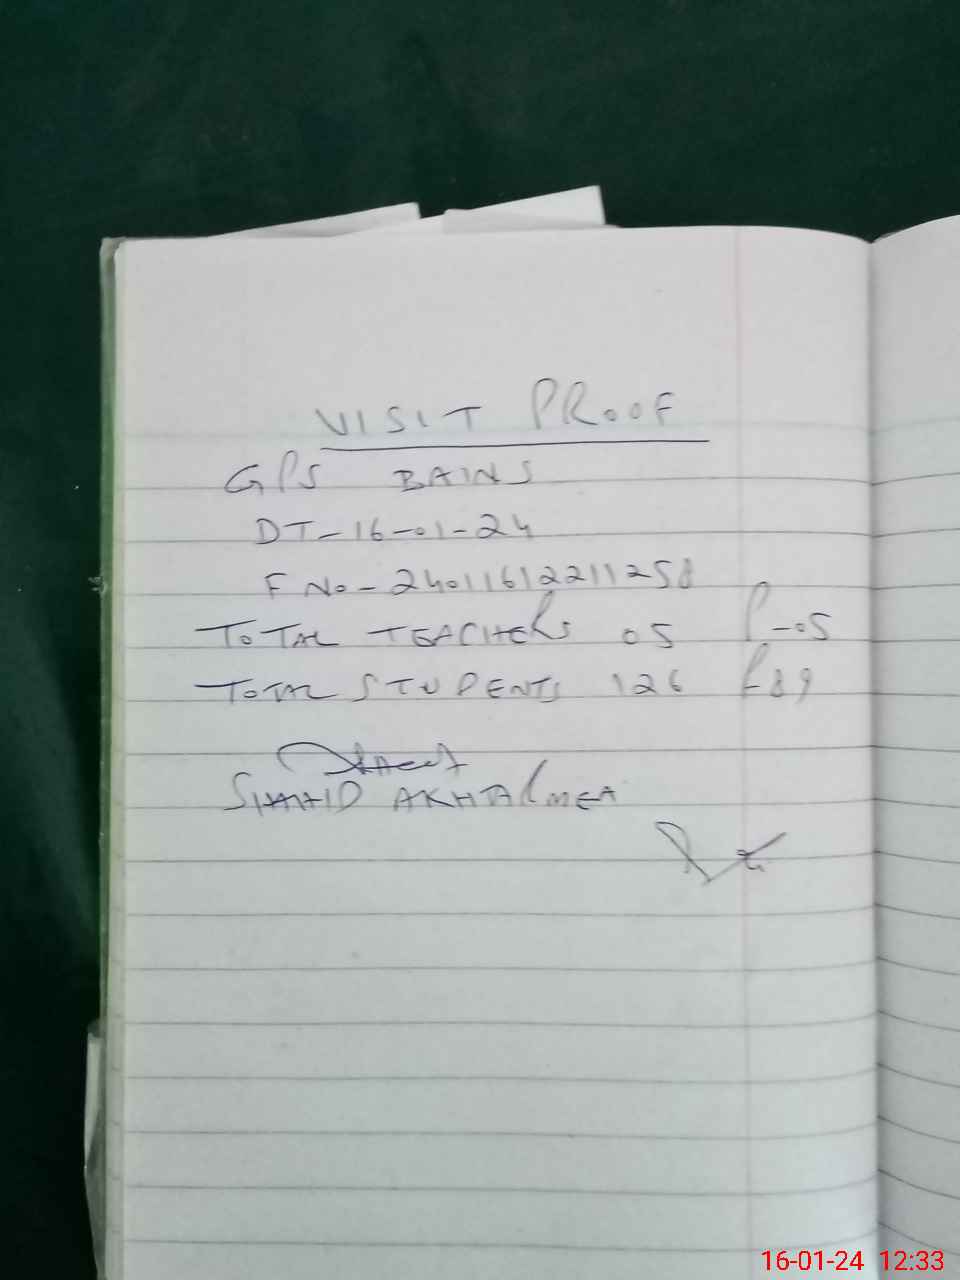 VISIT PROOF
GPS BAINS
DT-16-01-24
F No-24011612211258
TOTAL TEACHERS 05 P-05
TOTAL STUDENTS 126 P-89
SHAHID AKHTAR MEA
16-01-24 12:33